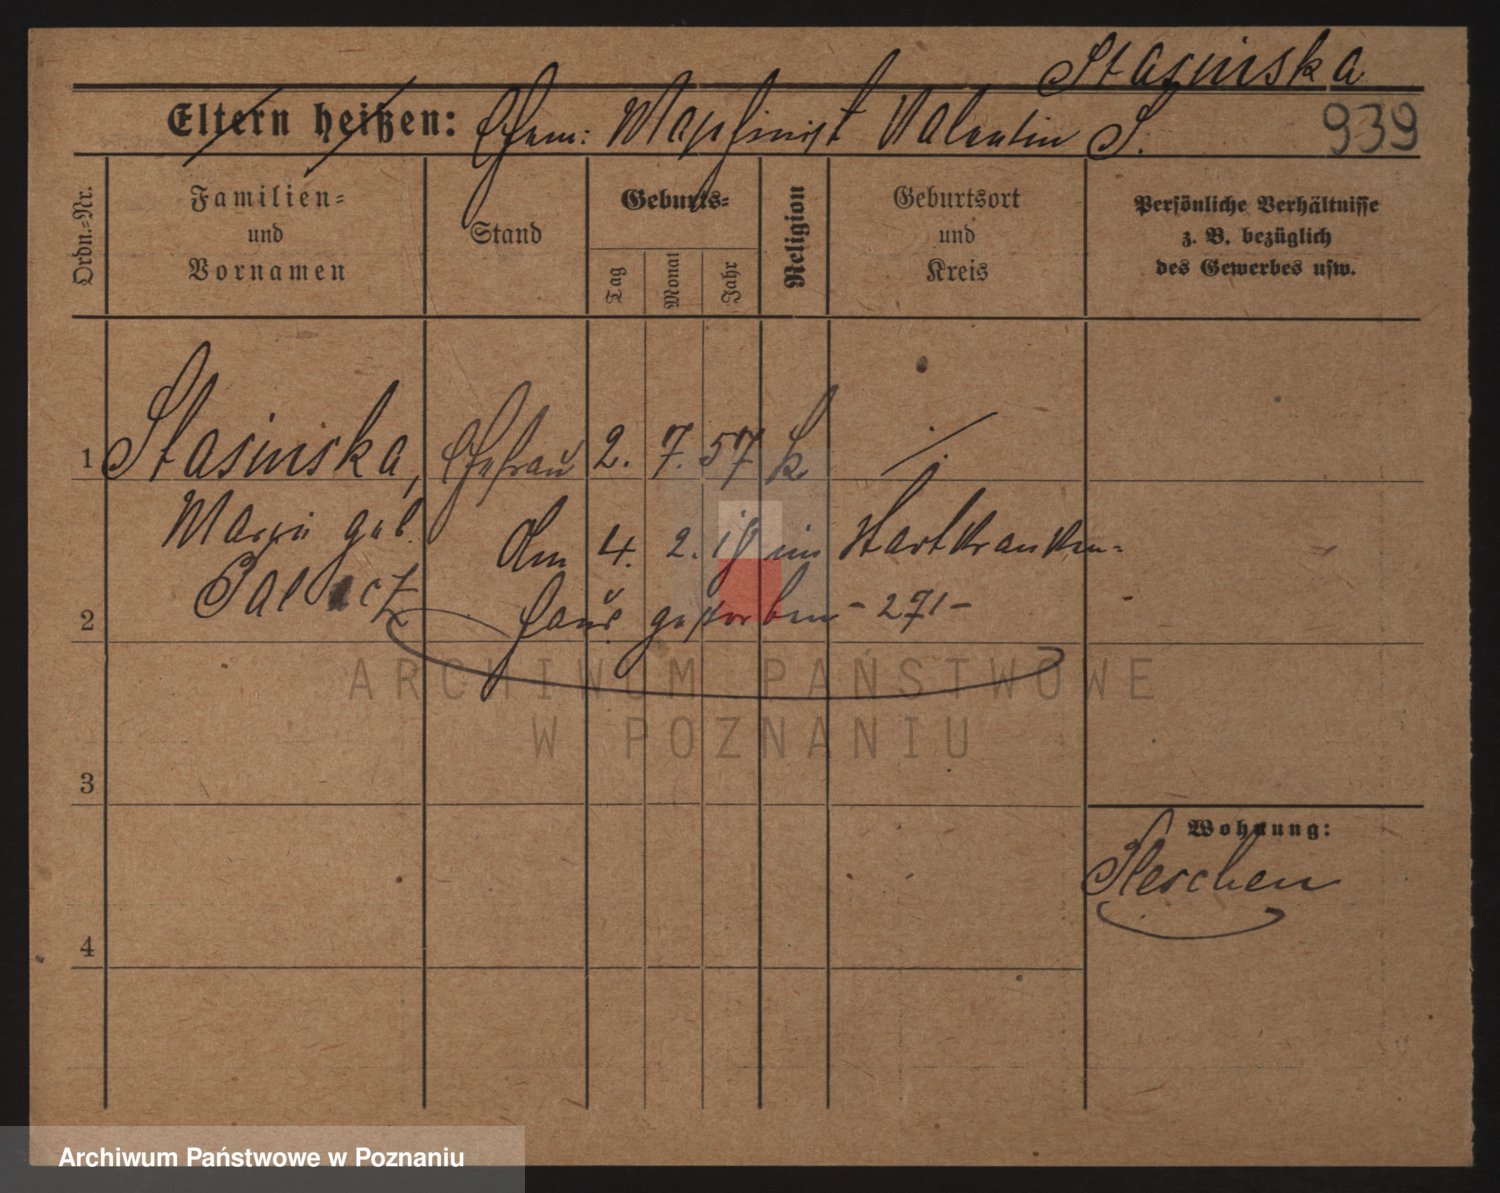 Stasinska
Eltern heißen: Ehem: Maschinist Valentin S.
939
Ordn.-Nr.
Familien-
und
Vornamen
Stand
Geburts-
Tag
Monat
Jahr
Religion
Geburtsort
und
Kreis
Persönliche Verhältnisse
z. B. bezüglich
des Gewerbes usw.
1 Stasinska, Ehefrau 2. 7. 57 k ./.
Marie geb.
Am 4. 2. 19 im Stadtkranken-
2
haus gestorben - 271 -
ARCHIWUM PAŃSTWOWE
W POZNANIU
3
Wohnung:
Pleschen
4
Archiwum Państwowe w Poznaniu